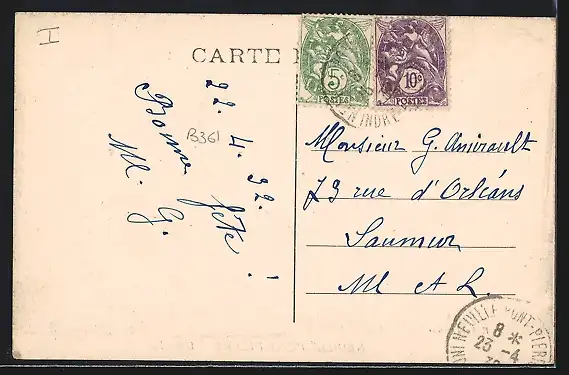 I
CARTE
5c
POSTES
10c
POSTES
N INDRE
22.4.32.
Bonne fête !
M. G.
B361
Monsieur G. Amirault
73 rue d'Orléans
Saumur
M et L.
NEUILLE-PONT-PIERRE
8 *
23 -4
32